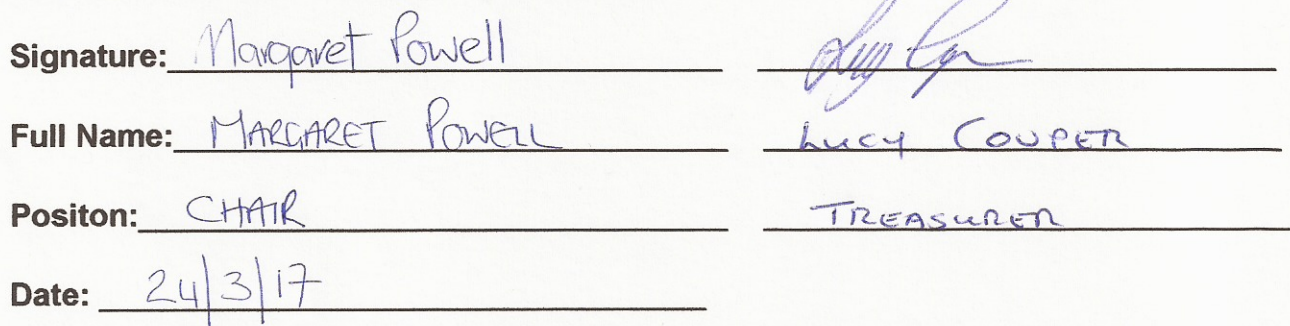 Signature: Margaret Powell
Full Name: MARGARET POWELL LUCY COUPER
Positon: CHAIR TREASURER
Date: 24/3/17